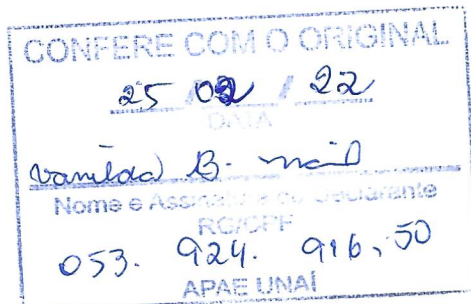 CONFERE COM O ORIGINAL
25 / 02 / 22
DATA
Vanilda B.
Nome e Assinatura do Declarante
RG/CPF
053. 924. 916, 50
APAE UNAÍ